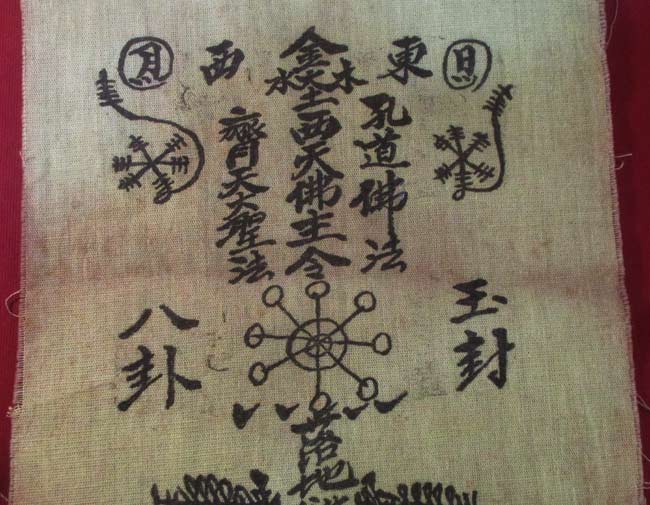 日
東
孔道佛法
金
木火水
土西天佛主令
西
月
齊天大聖法
玉封
八卦
落地